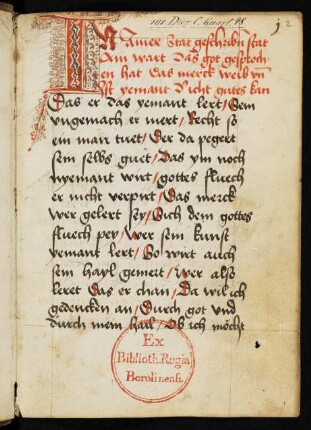 ms. Diez C. quart. 48. 2
IN ainer stat geschribn stat
Ain wart das got gesproch
en hat Das merck weib vn
Ist yemant Nicht gutes kan
Das er das yemant lert / Dem
vngemach er mert / Recht so
ein man tuet / Der da pegert
sein selbs guet / Das ym noch
nyemant wirt / gottes fluech
er nicht verpirt / Das merck
wer gelert sey / Dich dem gottes
fluech pey / Wer sein kunst
yemant lert / So wirt auch
sein hayl gemert / Wer also
leret Das er chan / Da wil ich
gedencken an / Durch got vnd
durch mein hail / Ob ich möcht
Ex
Biblioth. Regia
Berolinensi.